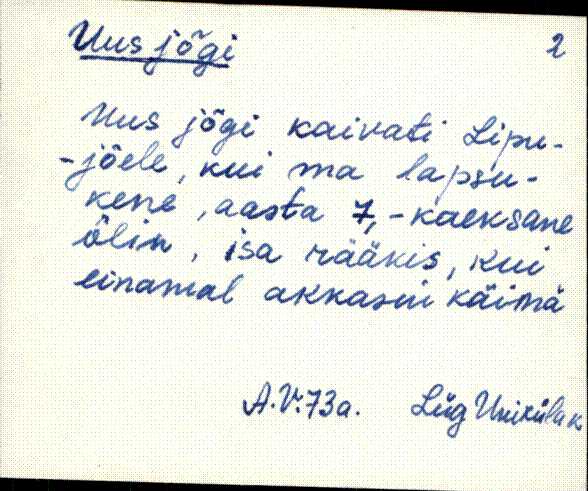 Uus jõgi 2
Uus jõgi kaivati Lipu-
-jõele, kui ma lapsu-
kene, aasta 7,-kaeksane
õlin, isa rääkis, kui
einamal akkasin käimä
A.V.73a. Lüg Uniküla k